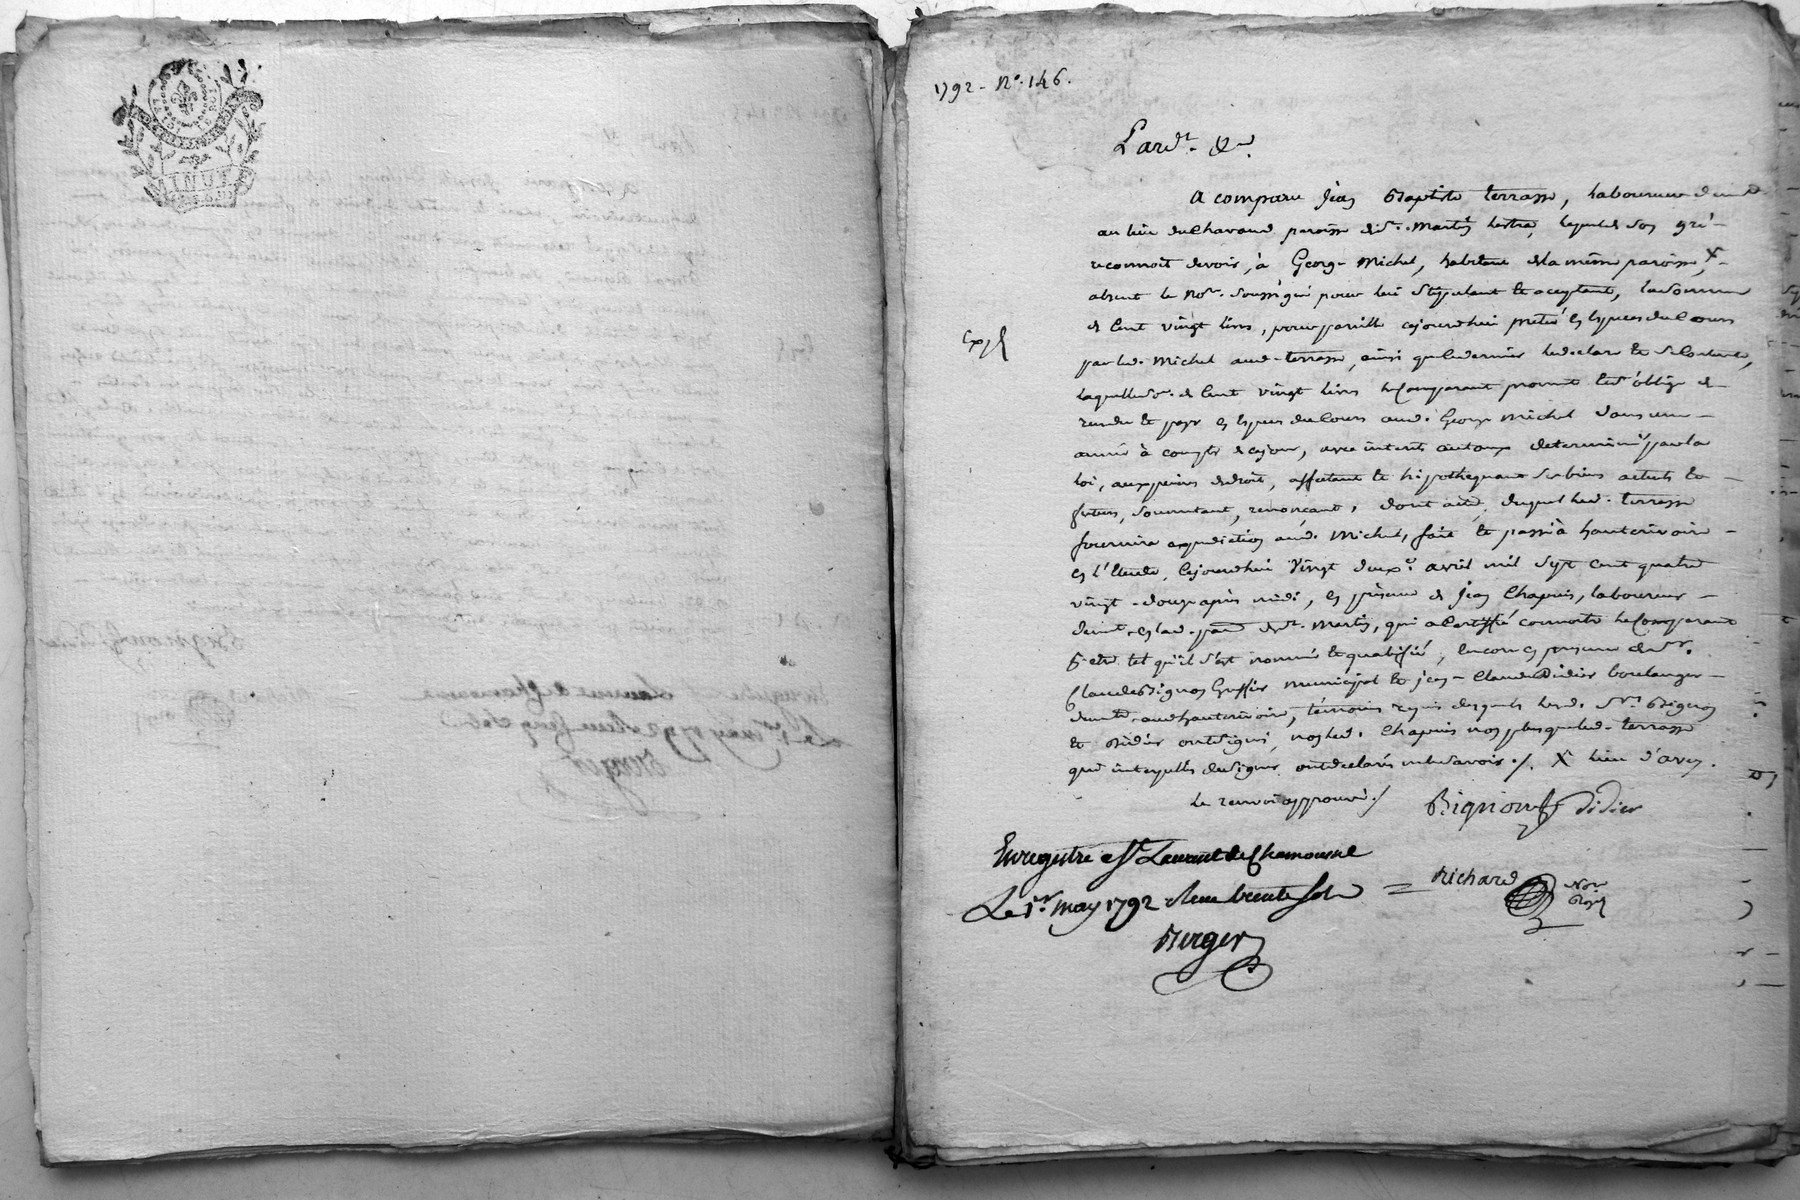 MINUT
1792 - N°. 146.
Pard.t &a.
A comparu jean Baptiste terrasse, laboureur demt
au lieu du Chavand paroisse de St. Martin lestra, lequel de son gré
reconnoit devoir, à George Michel, habitant de la même paroisse, X
absent le Nore. soussigné pour lui stipulant et acceptant, la somme
de Cent vingt livres, pour pareille cejourd'hui pretée en especes du Cours
par led. Michel aud. terrasse, ainsi que ce dernier le declare et s'en Contente,
laquelle se. de Cent vingt livres le Comparant promet et s'oblige de
rendre et payer en especes du Cours aud. George Michel dans une
année à compter de ce jour, avec interets au taux determiné par la
loi, aux peines de droit, affectant et hipothequant ses biens actuels et
futurs, soumettant, renonçant, dont acte, duquel led. terrasse
fournira expedition aud. Michel, fait et passé à hauterivoire
en l'Etude, Cejourd'hui Vingt deux avril mil sept cent quatre
vingt-douze après midi, en présence de jean Chapuis, laboureur
demt. en lad. par. de St. Martin, qui a Certifié connoitre le Comparant
& etre tel qu'il s'est nommé et qualifié, encore en presence de Sr.
Claude Bignon Greffier municipal et jean-Claude Didier boulanger
demt. aud hauterivoire, témoins requis desquels lesd. Srs. Bignon
et Didier ont signé, non led. Chapuis non plus que led. terrasse
qui interpellés de signer ont declaré ne le savoir ./. X lieu d'arcy.
Exp.
le renvoi approuvé ./
Bignon Didier
Enregistré a St. Laurent de Chamousset
Le 1er. may 1792 Reçu trente sols
Richard Nore Royal
Berger